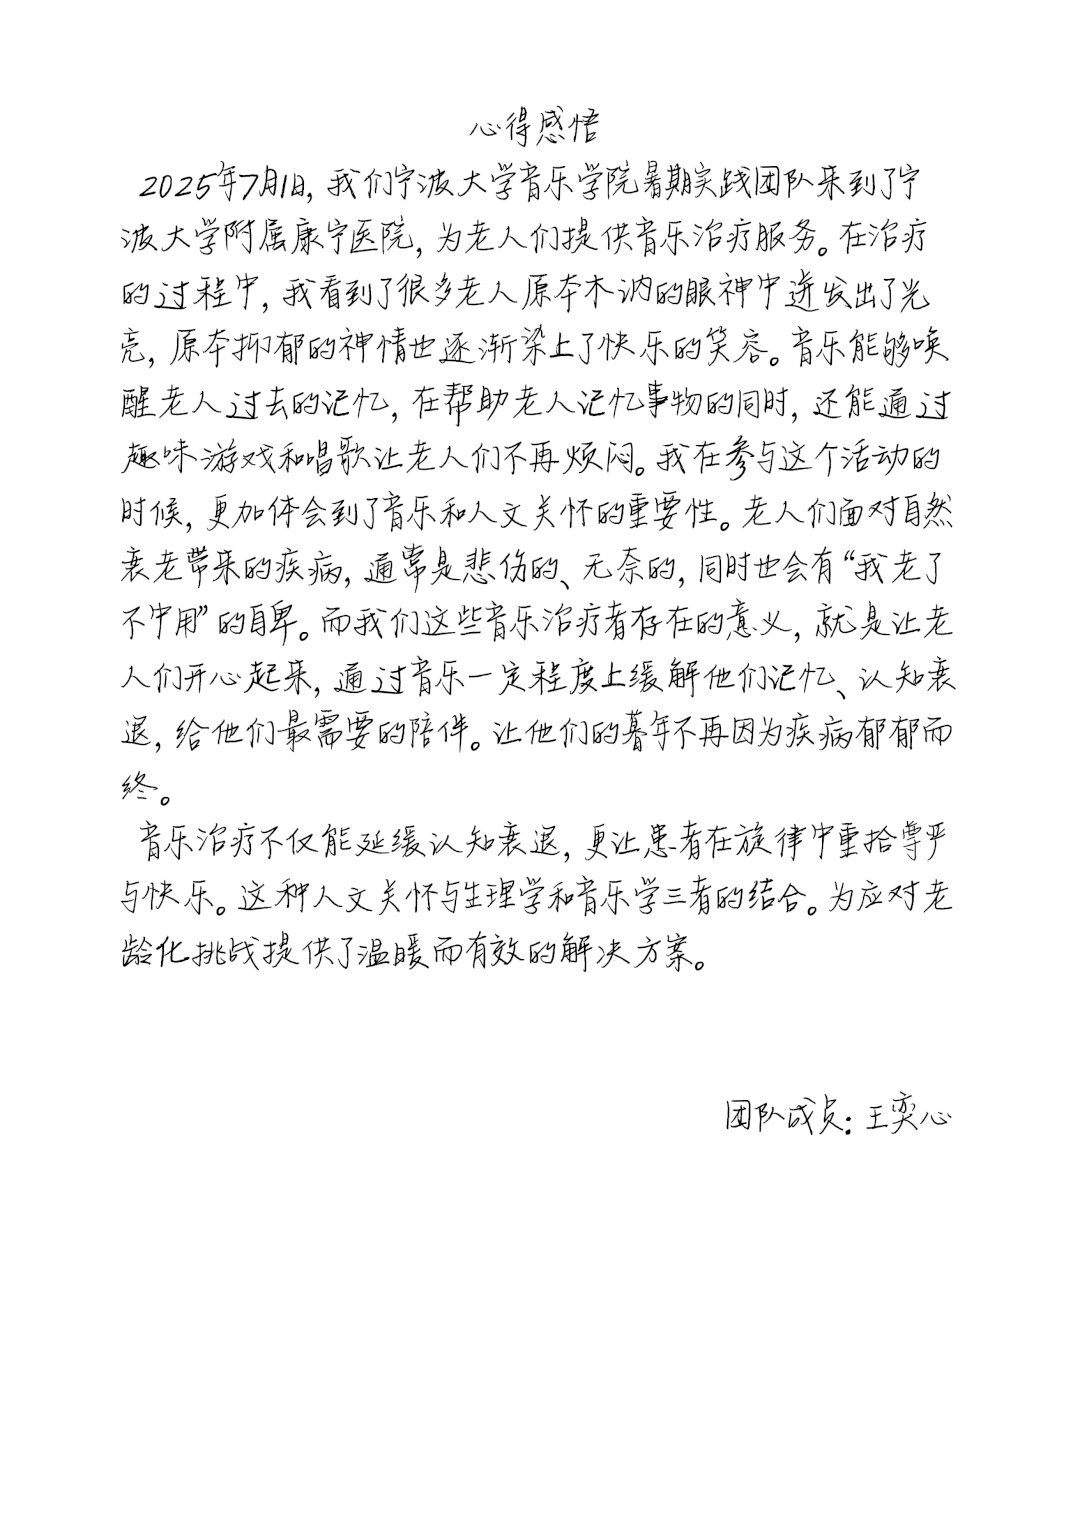 心得感悟
2025年7月1日，我们宁波大学音乐学院暑期实践团队来到了宁
波大学附属康宁医院，为老人们提供音乐治疗服务。在治疗
的过程中，我看到了很多老人原本木讷的眼神中迸发出了光
亮，原本抑郁的神情也逐渐染上了快乐的笑容。音乐能够唤
醒老人过去的记忆，在帮助老人记忆事物的同时，还能通过
趣味游戏和唱歌让老人们不再烦闷。我在参与这个活动的
时候，更加体会到了音乐和人文关怀的重要性。老人们面对自然
衰老带来的疾病，通常是悲伤的、无奈的，同时也会有“我老了
不中用”的自卑。而我们这些音乐治疗者存在的意义，就是让老
人们开心起来，通过音乐一定程度上缓解他们记忆、认知衰
退，给他们最需要的陪伴。让他们的暮年不再因为疾病郁郁而
终。
音乐治疗不仅能延缓认知衰退，更让患者在旋律中重拾尊严
与快乐。这种人文关怀与生理学和音乐学三者的结合。为应对老
龄化挑战提供了温暖而有效的解决方案。
团队成员：王奕心